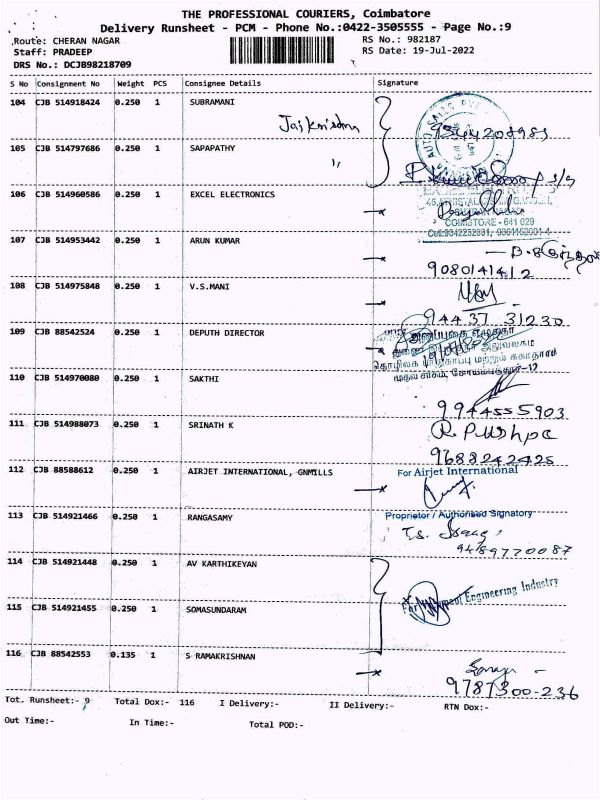 THE PROFESSIONAL COURIERS, Coimbatore
Delivery Runsheet - PCM - Phone No.:0422-3505555 - Page No.:9
Route: CHERAN NAGAR RS No.: 982187
Staff: PRADEEP RS Date: 19-Jul-2022
DRS No.: DCJB98218709
S No Consignment No Weight PCS Consignee Details Signature
104 CJB 514918424 0.250 1 SUBRAMANI
Jaikrishna
9344208985
105 CJB 514797686 0.250 1 SAPAPATHY
106 CJB 514960586 0.250 1 EXCEL ELECTRONICS
COIMBTORE - 641 029
107 CJB 514953442 0.250 1 ARUN KUMAR
9080141412
108 CJB 514975848 0.250 1 V.S.MANI
94437 31230
109 CJB 88542524 0.250 1 DEPUTH DIRECTOR
110 CJB 514970080 0.250 1 SAKTHI
9944555903
111 CJB 514988073 0.250 1 SRINATH K
R. Pushpa
9688242425
112 CJB 88588612 0.250 1 AIRJET INTERNATIONAL, GNMILLS
For Airjet International
Proprietor / Authorised Signatory
113 CJB 514921466 0.250 1 RANGASAMY
9489770087
114 CJB 514921448 0.250 1 AV KARTHIKEYAN
Engineering Industry
115 CJB 514921455 0.250 1 SOMASUNDARAM
116 CJB 88542553 0.135 1 S RAMAKRISHNAN
9787300-236
Tot. Runsheet:- 9 Total Dox:- 116 I Delivery:- II Delivery:- RTN Dox:-
Out Time:- In Time:- Total POD:-